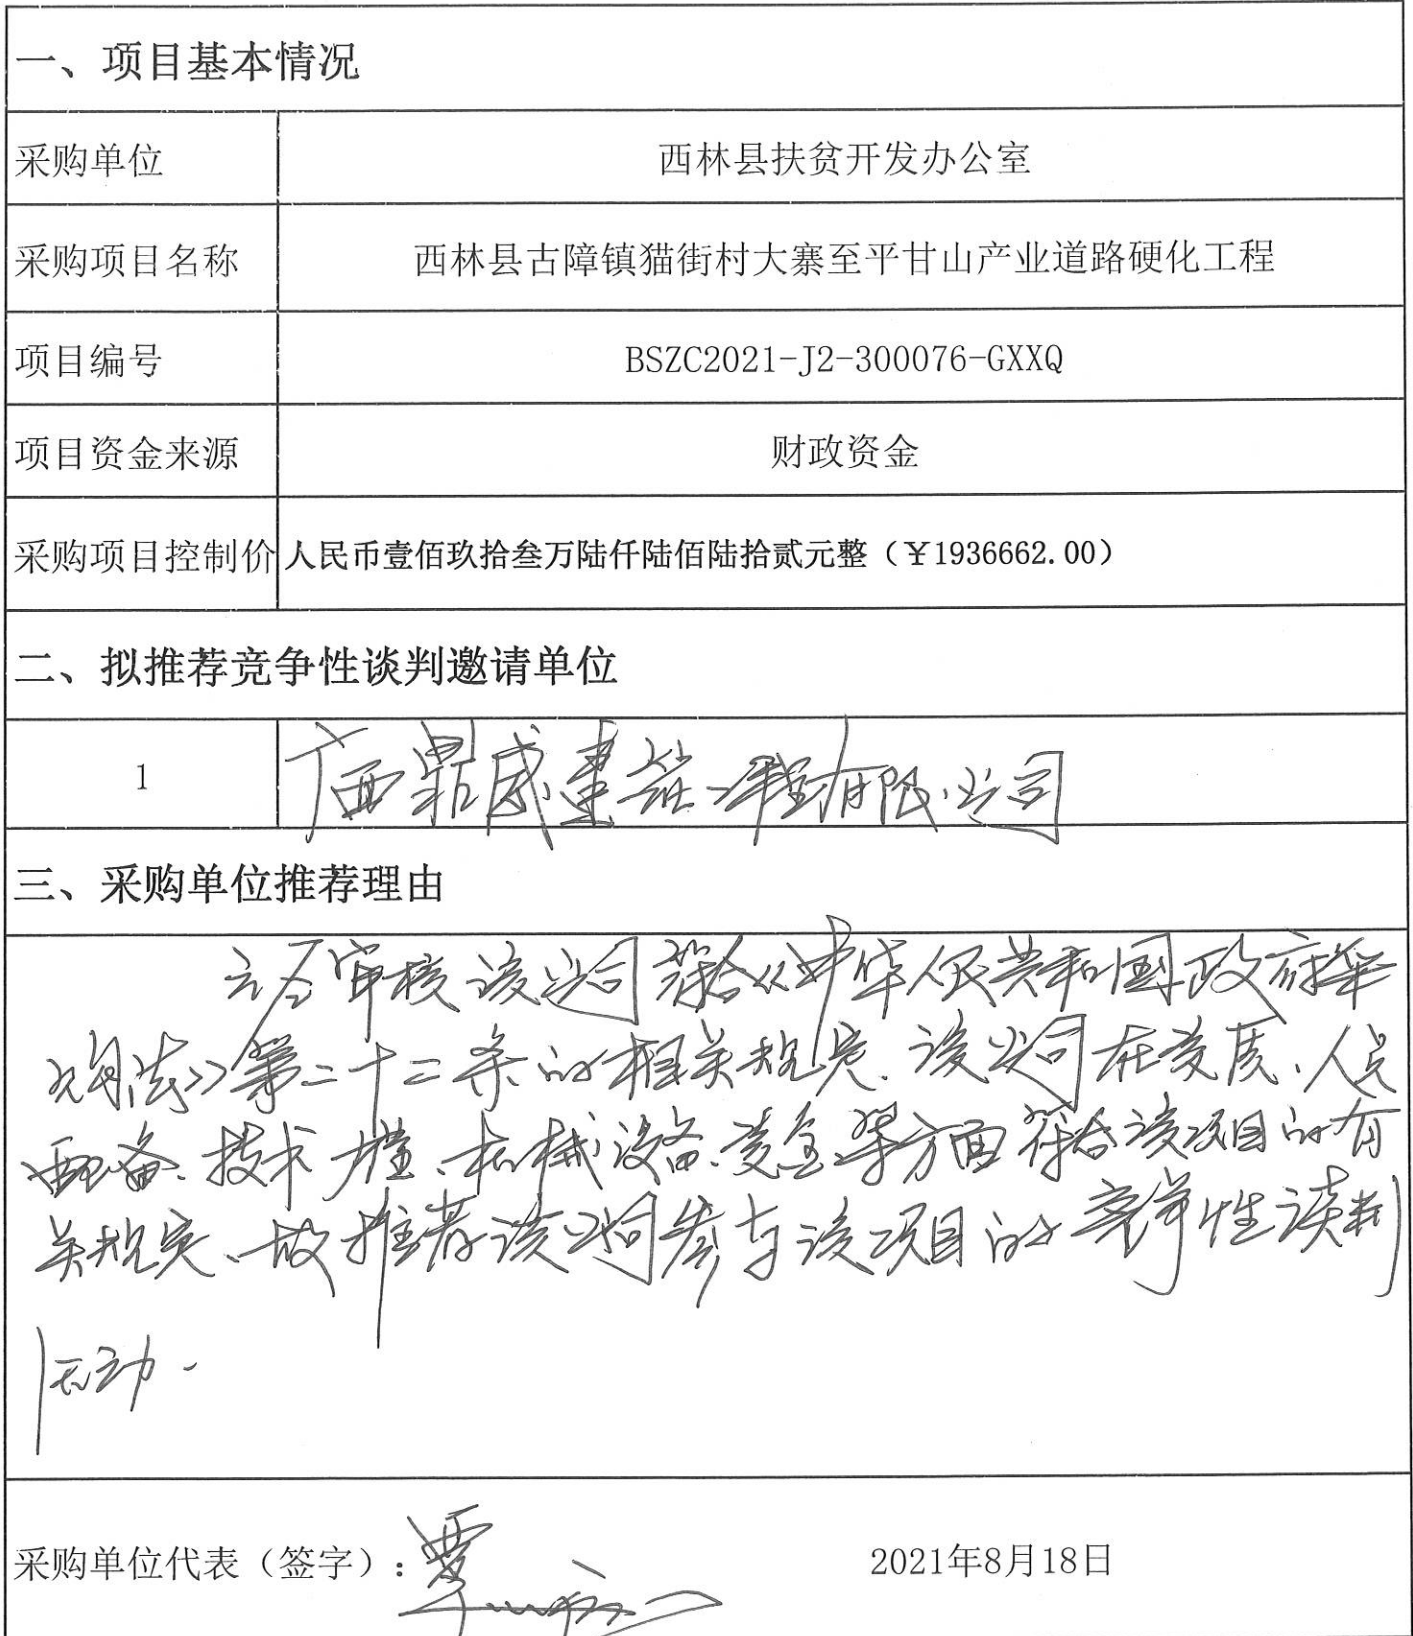 一、项目基本情况
采购单位 西林县扶贫开发办公室
采购项目名称 西林县古障镇猫街村大寨至平甘山产业道路硬化工程
项目编号 BSZC2021-J2-300076-GXXQ
项目资金来源 财政资金
采购项目控制价 人民币壹佰玖拾叁万陆仟陆佰陆拾贰元整（￥1936662.00）
二、拟推荐竞争性谈判邀请单位
1 广西鼎盛建筑工程有限公司
三、采购单位推荐理由
审核该公司符合《中华人民共和国政府采
购法》第二十二条的相关规定、该公司在资质、人员
配备、技术力量、机械设备、资金等方面符合该项目的有
关规定、故推荐该公司参与该项目的竞争性谈判
活动.
采购单位代表（签字）：覃 2021年8月18日